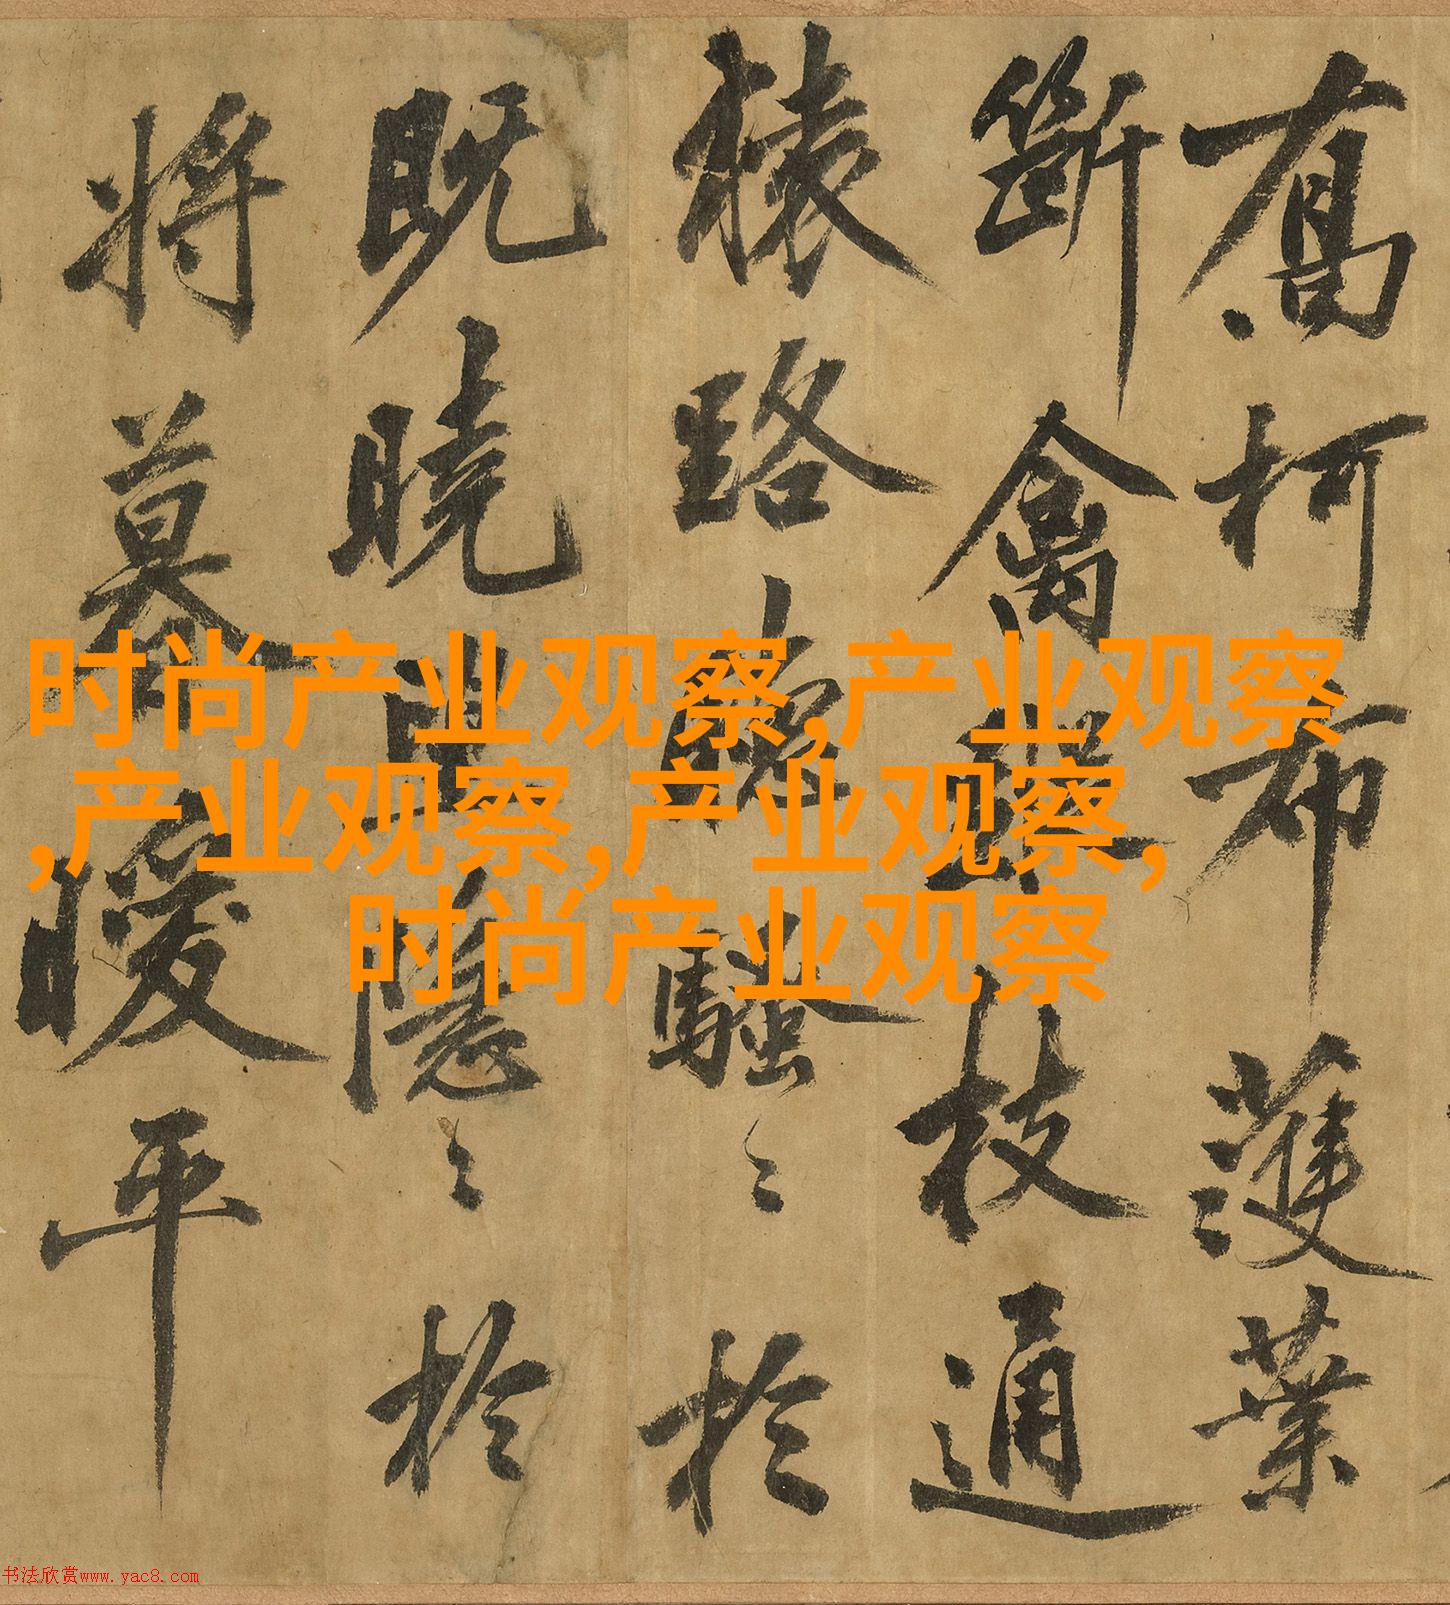 喬柯布濩葉
斷禽枝通
猿路騷〻於
既曉隱〻於
將暮曖平
时尚产业观察,产业观察
,产业观察,产业观察,
时尚产业观察
书法欣赏www.yac8.com